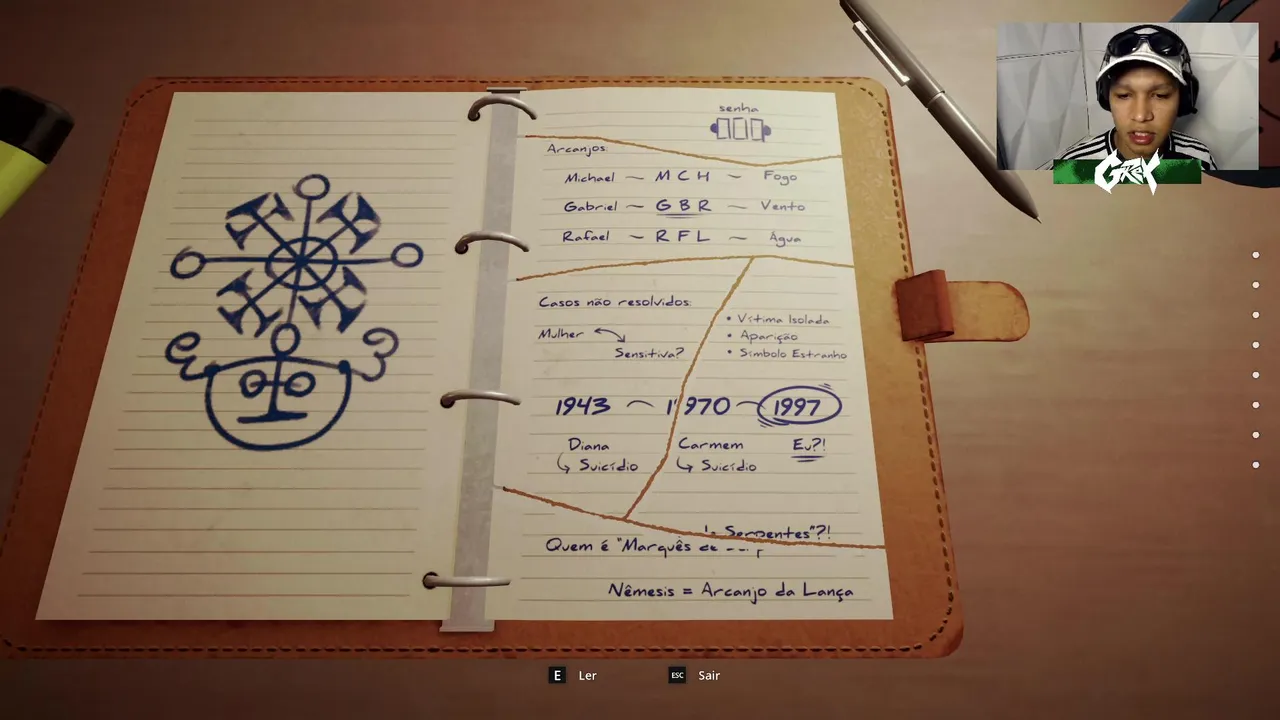 senha
Arcanjos:
Michael — MCH — Fogo
Gabriel — GBR — Vento
Rafael — RFL — Água
Casos não resolvidos:
Mulher
Sensitiva?
• Vítima Isolada
• Aparição
• Símbolo Estranho
1943 — 1970 — 1997
Diana
Suicídio
Carmem
Suicídio
Eu?!
Quem é "Marquês de Serpentes"?!
Nêmesis = Arcanjo da Lança
E Ler
ESC Sair
GREX